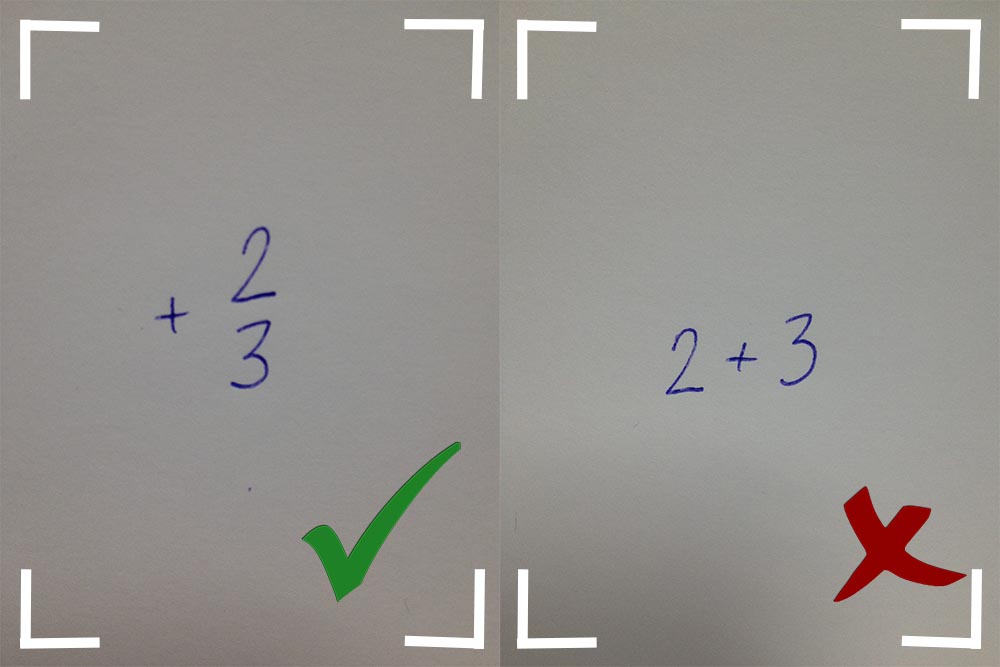 2
+
3
2 + 3